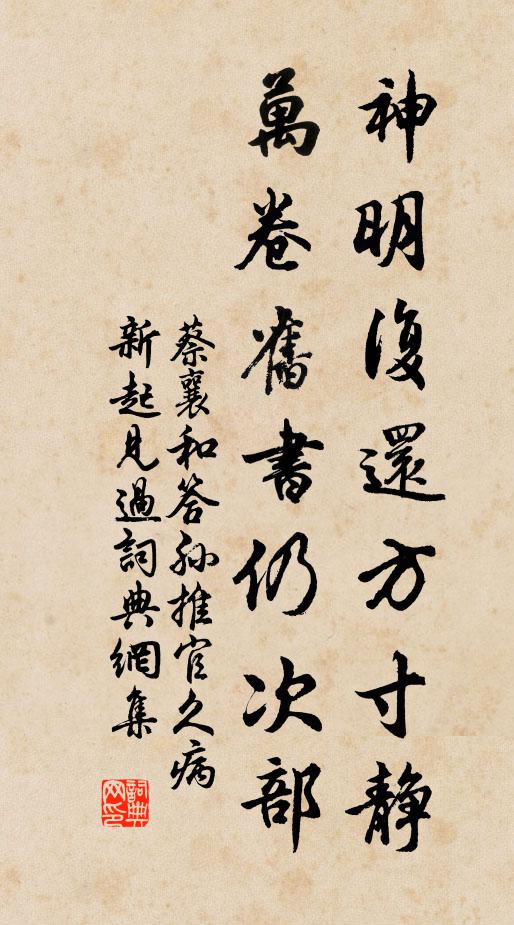 神明復還方寸静
萬卷舊書仍次部
蔡襄和答孫推官久病
新起見過詞典網集
詞典网印